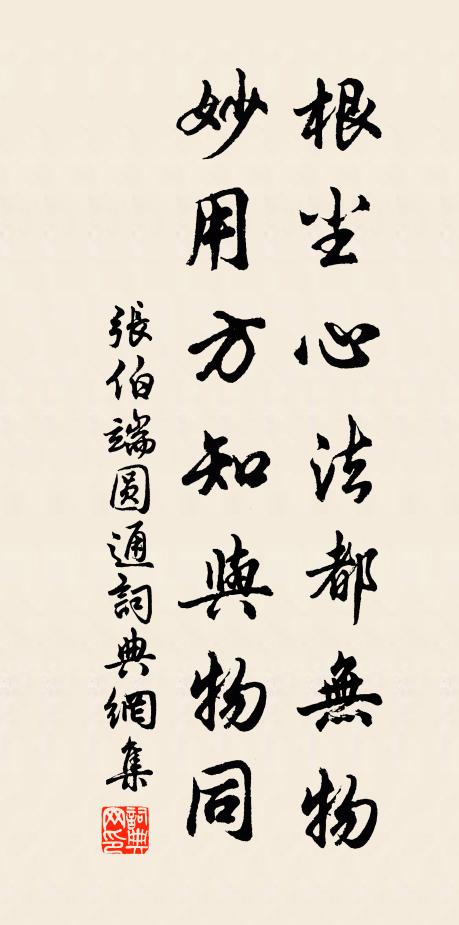 根尘心法都無物
妙用方知與物同
張伯端圓通詞典網集
詞典网印